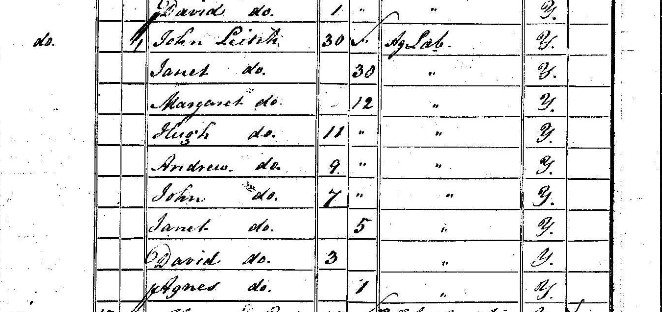 David do. 1 " " Y.
do. 1 John Leish 30 Ag Lab. Y.
Janet do. 30 " Y.
Margaret do. 12 " Y.
Hugh do. 11 " " Y.
Andrew do. 9 " " Y.
John do. 7 " " Y.
Janet do. 5 " Y.
David do. 3 " Y.
Agnes do. 1 " Y.